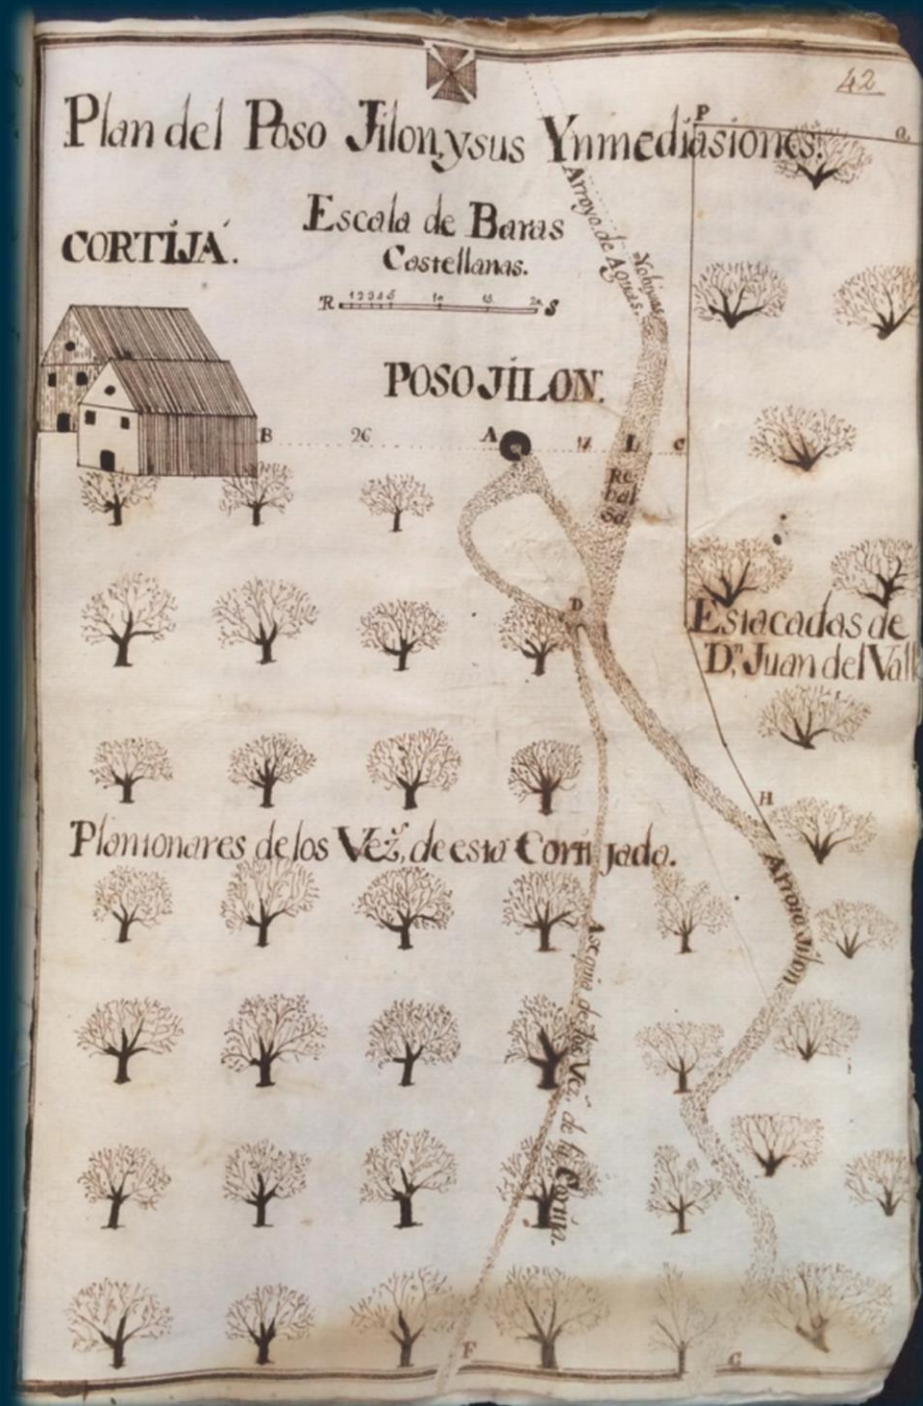 42
Plan del Poso Jilon, y sus Ynmediasiones.
P
a
Arroyo de Aguas
CORTIJA.
Escala de Baras
Castellanas.
R 1 2 3 4 5 10 15 20 S
POSO JILON.
B 26 A L C
Re
bal
sa
D
Estacadas de
Dn. Juan del Vall
H
Plantonares de los Vez.s, de esta Cortijada.
Arroio Jilon
Asequia de los Vez.s de la Cortija.
F
G